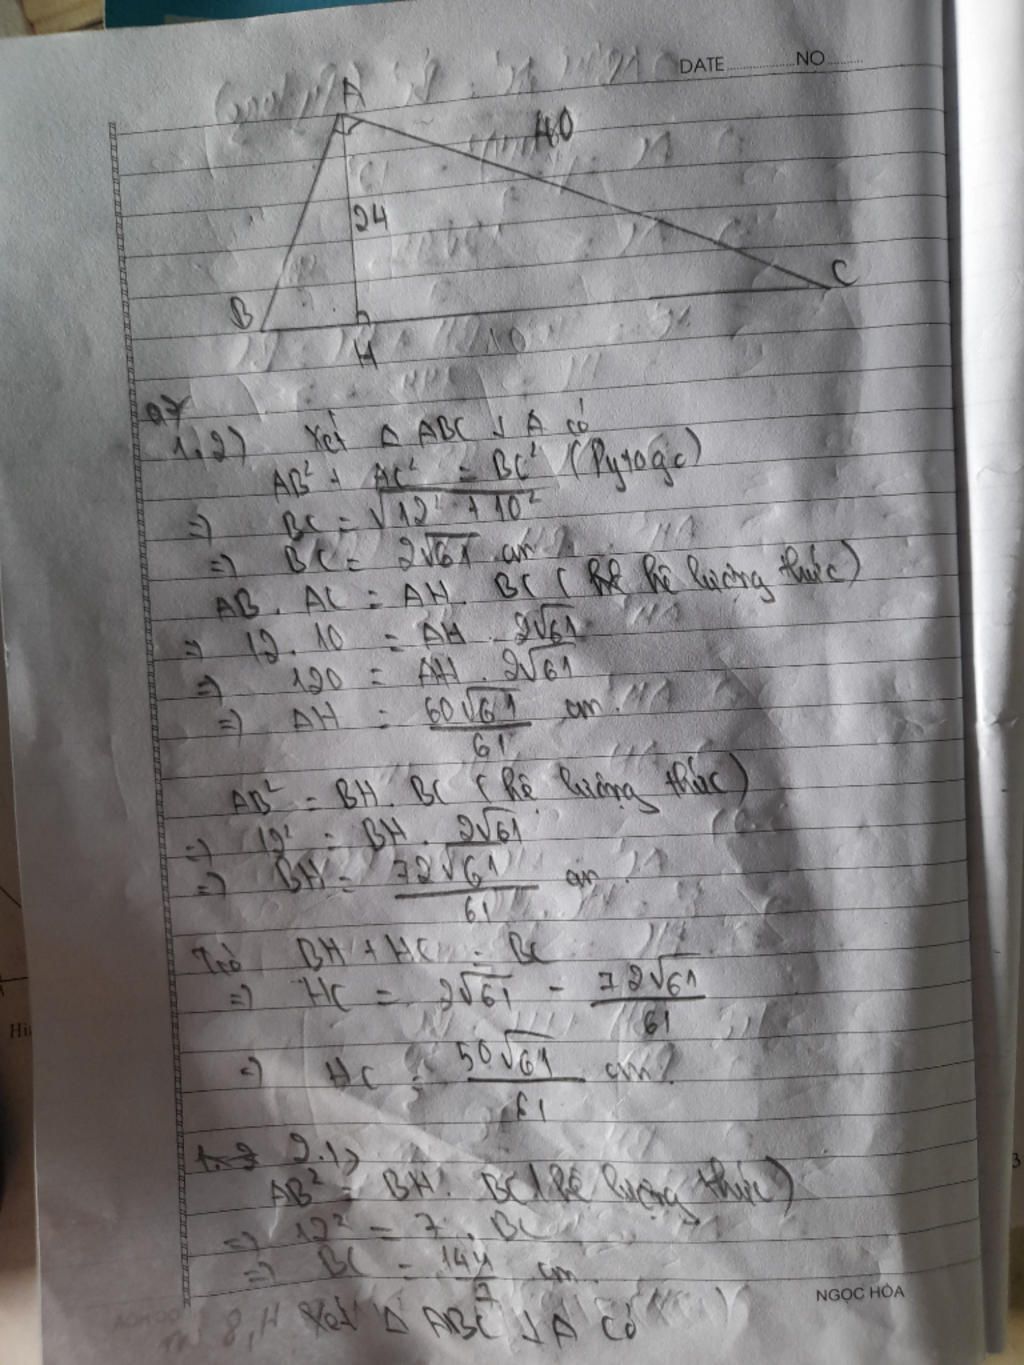 DATE NO
A
40
24
B
C
H
10
1.2) Xét Δ ABC ⊥ A có
AB² + AC² = BC² (Pytago)
=) BC = √12² + 10²
=) BC = 2√61 cm
AB . AC = AH . BC ( hệ lượng thức)
=) 12 . 10 = AH . 2√61
=) 120 = AH . 2√61
=) AH = 60√61/61 cm.
AB² = BH . BC ( hệ lượng thức)
=) 12² = BH . 2√61
=) BH = 72√61/61 cm
BH + HC = BC
=) HC = 2√61 - 72√61/61
=) HC = 50√61/61 cm
2.1)
AB² = BH . BC ( hệ lượng thức)
=) 12² = 7 . BC
=) BC = 144/7 cm.
NGỌC HÒA
Xét Δ ABC ⊥ A có